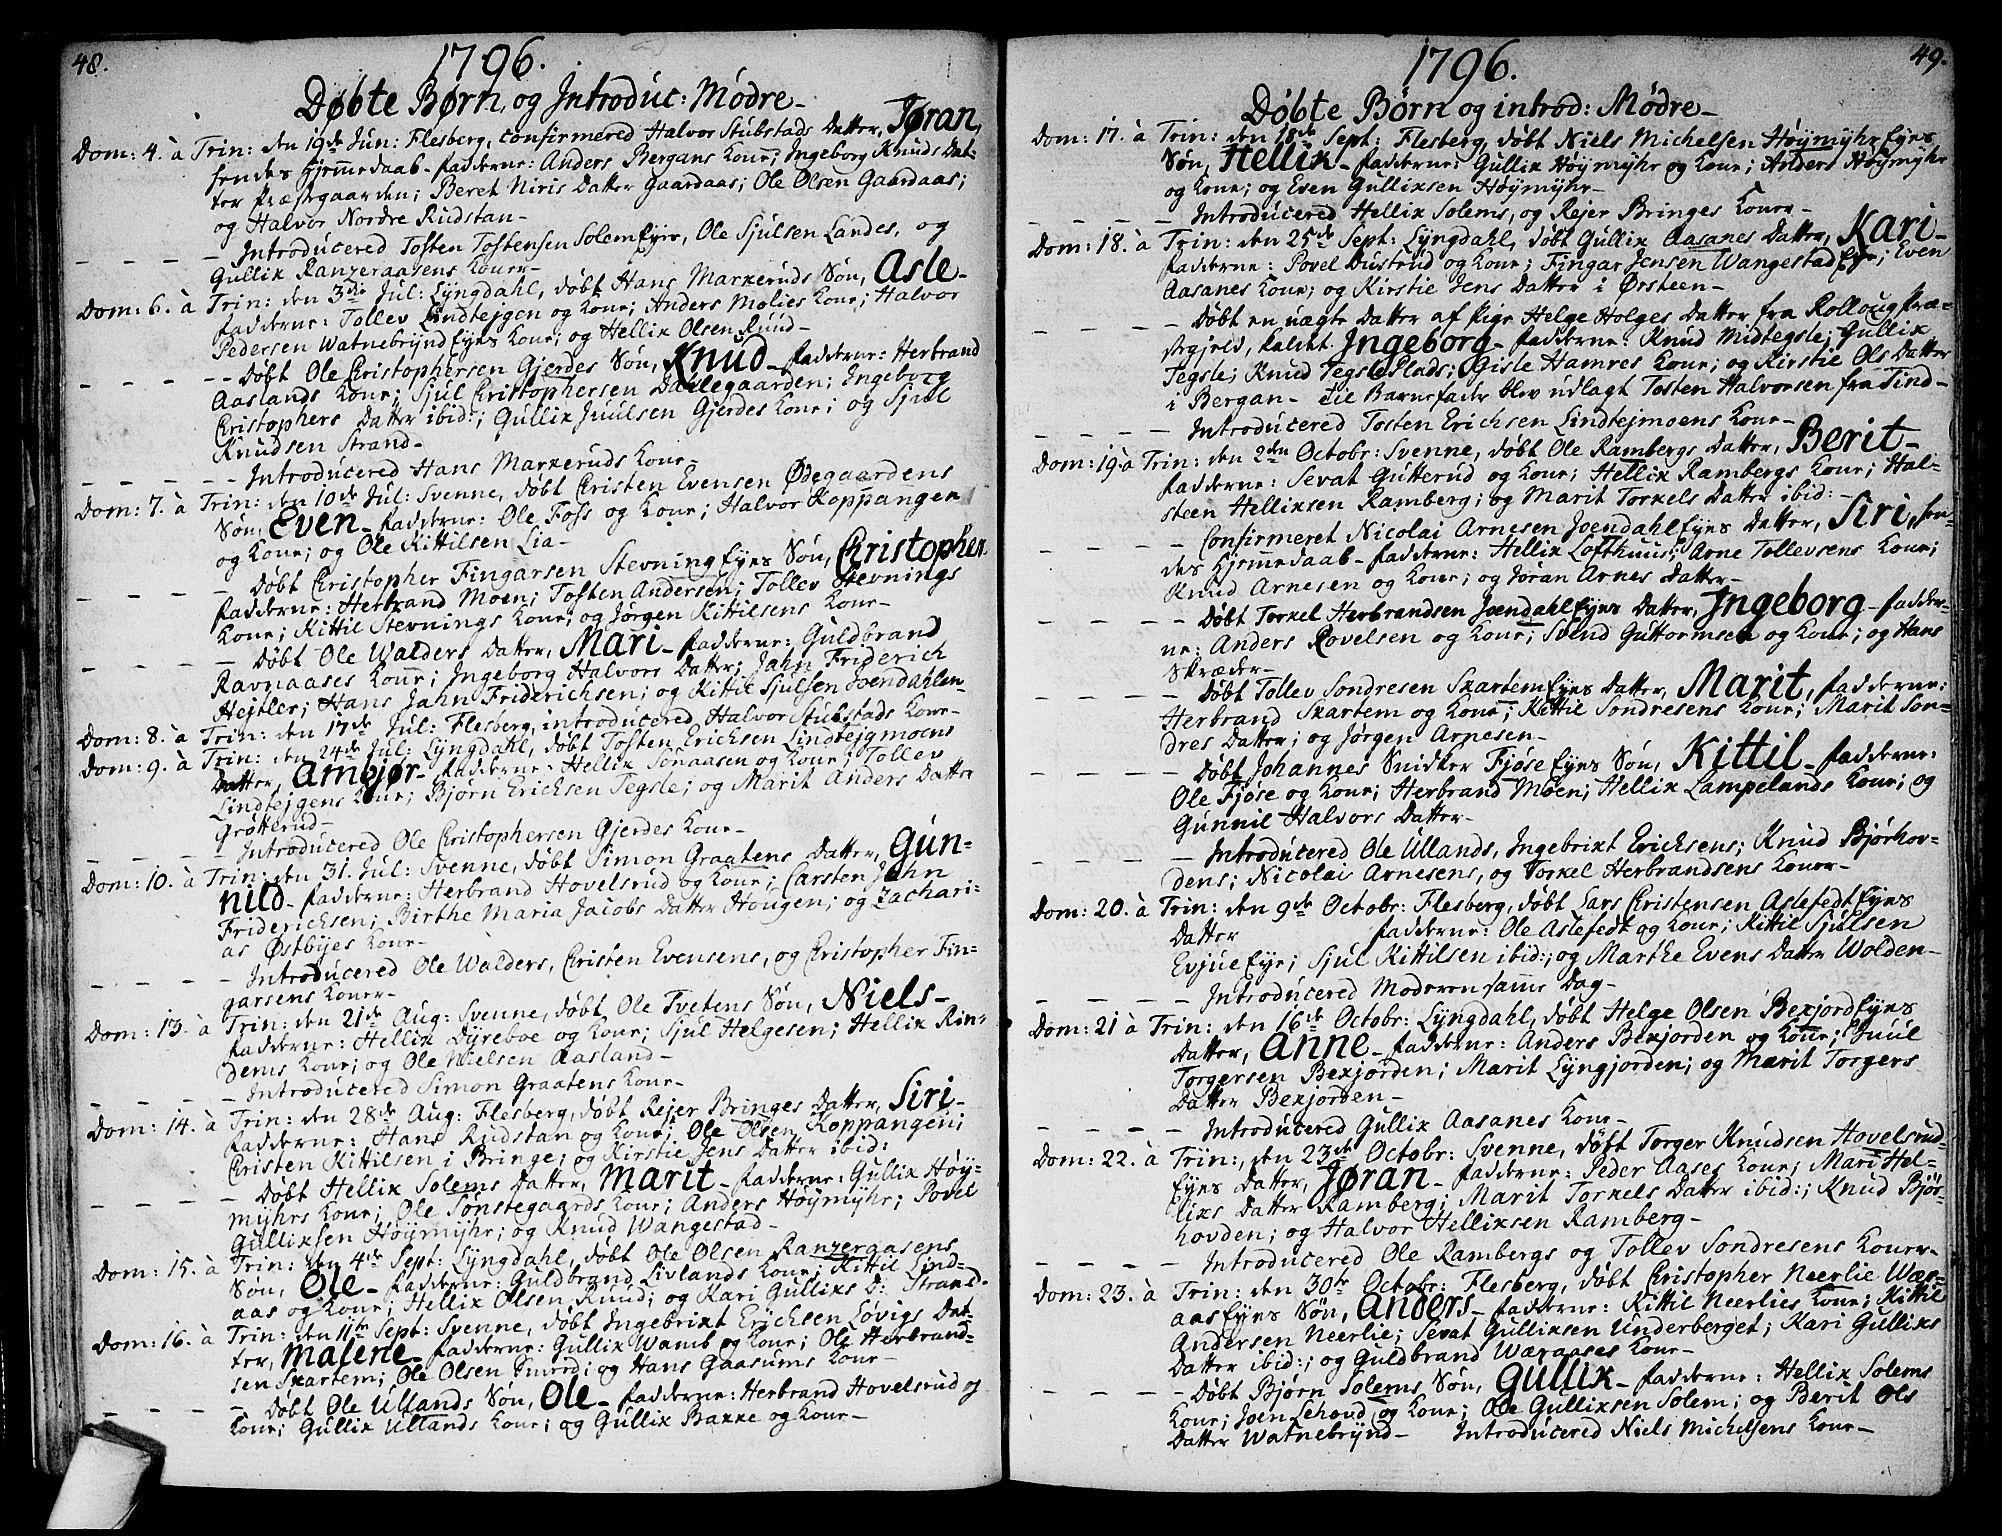 48.
1796.
Døbte Børn, og Introduc: Mødre_
Dom: 4. à Trin: den 19de Jun: Flesberg, confirmered Halvor Stubstads Datter, Jøran,
hendes Hjemmedaab_ fadderne: Anders Bergans Kone; Ingeborg Knuds Dat-
ter Præstgaarden; Beret Niris Datter Gaardaas; Ole Olsen Gaardaas;
og Halvor Nordre Rudstan_
_ _ _ _ Introducered Tosten Tostensen Solem Eje, Ole Sjulsen Landes, og
Gullik Ranzeraasens Koner_
Dom: 6. à Trin: den 3die Jul: Lyngdahl, døbt Hans Markeruds Søn, Asle_
fadderne: Tollev Lindtejgen og Kone; Anders Molies Kone; Halvor
Pedersen Watnebrynd Eyes Kone; og Hellik Olsen Ruud_
_ _ _ _ _ Døbt Ole Christophersen Gjerdes Søn, Knud_ fadderne: Herbrand
Aaslands Kone; Sjul Christophersen Dahlegaarden; Ingeborg
Christophers Datter ibid:; Gullix Juulsen Gjerdes Kone; og Sjul
Knudsen Strand_
_ _ _ _ _ Introducered Hans Markeruds Kone_
Dom: 7. à Trin: den 10de Jul: Svenne, døbt Christen Evensen Ødegaardens
Søn, Even_ fadderne: Ole Foss og Kone; Halvor Koppangen
og Kone; og Ole Kittilsen Lia_
_ _ _ _ Døbt Christopher Fingarsen Stevning Eyes Søn, Christopher
fadderne: Herbrand Moen; Tosten Andersen; Tollev Stevnings
Kone; Kittil Stevnings Kone; og Jørgen Kittilsens Kone_
_ _ _ _ _ Døbt Ole Walders Datter, Mari_ fadderne: Guldbrand
Ravnaases Kone; Ingeborg Halvors Datter; Jahn Friderich
Hejtler; Hans Jahn Friderichsen; og Kittil Sjulsen Joendahlen_
Dom: 8. à Trin: den 17de Jul: Flesberg, introducered Halvor Stubstads Kone_
Dom: 9. à Trin: den 24de Jul: Lyngdahl, døbt Tosten Ericksen Lindtejgmoens
Datter, Ambjør_ fadderne: Hellix Sønaasen og Kone; Tollev
Lindtejgens Kone; Bjørn Ericksen Tegsle; og Marit Anders Datter
Grøtterud_
_ _ _ _ _ Introducered Ole Christophersen Gjerdes Kone_
Dom: 10. à Trin: den 31. Jul: Svenne, døbt Simon Graatens Datter, Gun-
nild_ fadderne: Herbrand Hovelsrud og Kone; Carsten Jahn
Friderichsen; Birthe Maria Jacobs Datter Hougen; og Zachari-
as Østbyes Kone_
_ _ _ _ Introducered Ole Walders, Christen Evensens, og Christopher Fin-
garsens Koner_
Dom: 13. à Trin: den 21de Aug: Svenne, døbt Ole Tvetens Søn, Niels_
fadderne: Hellix Dyreboe og Kone; Sjul Helgesen; Hellix Rin-
dems Kone; og Ole Nielsen Aasland_
_ _ _ _ _ Introducered Simon Graatens Kone_
Dom: 14. à Trin: den 28de Aug: Flesberg, døbt Rejer Bringes Datter, Siri_
fadderne: Hans Rudstan og Kone; Ole Olsen Koppangen;
Christen Kittilsen i Bringe; og Kirstie Jens Datter ibid:
_ _ _ _ Døbt Hellix Solems Datter, Marit_ fadderne: Gullix Høy-
myhrs Kone; Ole Sønstegaards Kone; Anders Høymyhr; Povel
Gullixsen Høymyhr; og Knud Wangestad_
Dom: 15. à Trin: den 4de Sept: Lyngdahl, døbt Ole Olsen Ranzeraasens
Søn, Ole_ fadderne: Guldbrand Livlands Kone; Kittil Lind-
aas og Kone; Hellix Olsen Ruud; og Kari Gulliks D: Strand_
Dom: 16. à Trin: den 11te Sept: Svenne, døbt Ingebrixt Erichsen Løvigs Dat-
ter, Malene_ fadderne: Gullix Wamb og Kone; Ole Herbrand-
sen Skartem; Ole Olsen Juvred; og Hans Gaasums Kone_
_ _ _ _ _ Døbt Ole Ullands Søn, Ole_ fadderne: Herbrand Hovelsrud og
Kone; Gullix Ullands Kone; og Gullix Bakke og Kone_
49.
1796.
Døbte Børn og introd: Mødre_
Dom: 17. à Trin: den 18de Sept: Flesberg, døbt Niels Michelsen Høymyhr Eyes
Søn, Hellix_ fadderne: Gullix Høymyhr og Kone; Anders Høymyhr
og Kone; og Even Gullixsen Høymyhr_
_ _ _ _ Introducered Hellix Solems, og Rejer Bringes Koner_
Dom: 18. à Trin: den 25de Sept: Lyngdahl, døbt Gullix Aasanes Datter, Kari_
fadderne: Povel Dustrud og Kone; Fingar Jensen Wangestad Eye; Even
Aasanes Kone; og Kirstie Jens Datter i Ørsteen_
_ _ _ _ Døbt en uægte Datter af Pige Helge Holges Datter fra Rolloug Præ-
stegjeld, kaldet Ingeborg_ fadderne: Knud Midtegsle; Gullix
Tegsle; Knud Tegsle Plads; Gisle Hamres Kone; og Kirstie Ols Datter
i Bergan_ til Barnefader blev udlagt Tosten Halvorsen fra Tind_
_ _ _ _ Introducered Tosten Erichsen Lindtejmoens Kone_
Dom: 19 à Trin: den 2den Octobr: Svenne, døbt Ole Rambergs Datter, Berit_
fadderne: Sevat Gutterud og Kone; Hellix Rambergs Kone; Hal-
steen Hellixsen Ramberg; og Marit Torkels Datter ibid:_
_ _ _ _ Confirmeret Nicolai Arnesen Joendahl Eyes Datter, Siri, hen-
des Hjemmedaab_ fadderne: Hellix Lofthuus; Arne Tollevsens Kone;
Knud Arnesen og Kone; og Jøran Arnes Datter_
_ _ _ _ Døbt Torkel Herbrandsen Joendahl Eyes Datter, Ingeborg_ fadder-
ne: Anders Rovelsen og Kone; Svend Guttormsen og Kone; og Hans
Skræder_
_ _ _ _ Døbt Tollev Sondresen Skartem Eyes Datter, Marit, fadderne:
Herbrand Skartem og Kone; Kittil Sondresens Kone; Marit Son-
dres Datter; og Jørgen Arnesen_
_ _ _ _ Døbt Johannes Snidker Fjøse Eyes Søn, Kittil_ fadderne:
Ole Fjøse og Kone; Herbrand Moen; Hellix Lampelands Kone; og
Gunnil Halvors Datter_
_ _ _ _ Introducered Ole Ullands, Ingebrixt Ericksens; Knud Bjørhov-
dens; Nicolai Arnesens, og Torkel Herbrandsens Koner_
Dom: 20. à Trin: den 9de Octobr: Flesberg, døbt Lars Christensen Aslefedt Eyes
Datter fadderne: Ole Aslefedt og Kone; Kittil Sjulsen
Evjue Eye; Sjul Kittilsen ibid:; og Marthe Evens Datter Wolden_
_ _ _ _ Introducered Moderen samme Dag_
Dom: 21 à Trin: den 16de Octobr: Lyngdahl, døbt Helge Olsen Bexjord Eyes
Datter, Anne_ fadderne: Anders Bexjorden og Kone; Juul
Torgersen Bexjorden; Marit Lyngjorden; og Marit Torgers
Datter Bexjorden_
_ _ _ _ Introducered Gullix Aasanes Kone_
Dom: 22. à Trin: den 23de Octobr: Svenne, døbt Torger Knudsen Hovelsrud
Eyes Datter, Jøran_ fadderne: Peder Aases Kone; Mari Hel-
lixs Datter Ramberg; Marit Torkels Datter ibid:; Knud Bjør-
hovden; og Halvor Hellixsen Ramberg_
_ _ _ _ Introducered Ole Rambergs og Tollev Sondresens Koner_
Dom: 23. à Trin: den 30te Octobr: Flesberg, døbt Christopher Neerlie Wær-
aas Eyes Søn, Anders_ fadderne: Kittil Neerlies Kone; Kittil
Andersen Neerlie; Sevat Gullixsen Underberget; Kari Gullixs
Datter ibid:; og Guldbrand Wæraases Kone_
_ _ _ _ Døbt Bjørn Solems Søn, Gullix_ fadderne: Hellix Solems
Kone; Joen Lehovd og Kone; Ole Gullixsen Solem; og Berit Ols
Datter Watnebrynd_ Introducered Niels Michelsens Kone_